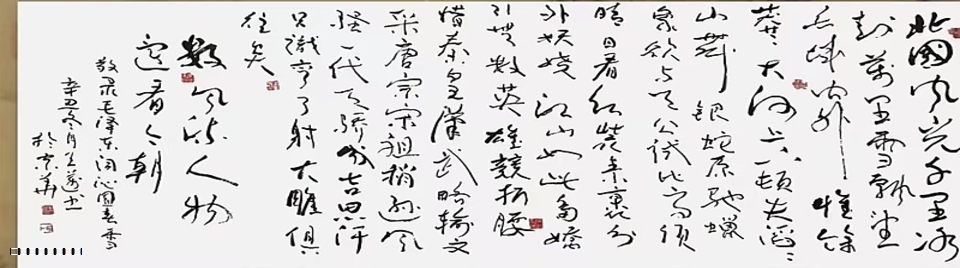 北國风光千里冰
封萬里雪飘望
长城内外惟餘
莽〻大河上下顿失滔〻
山舞银蛇原驰蠟
象欲与天公试比高须
晴日看红装素裹分
外妖娆江山如此多嬌
引無数英雄競折腰
惜秦皇漢武略输文
采唐宗宋祖稍逊风
骚一代天骄成吉思汗
只識弯弓射大雕俱
往矣
数风流人物
还看今朝
敬录毛泽东词沁園春雪
辛丑冬月书
於京華